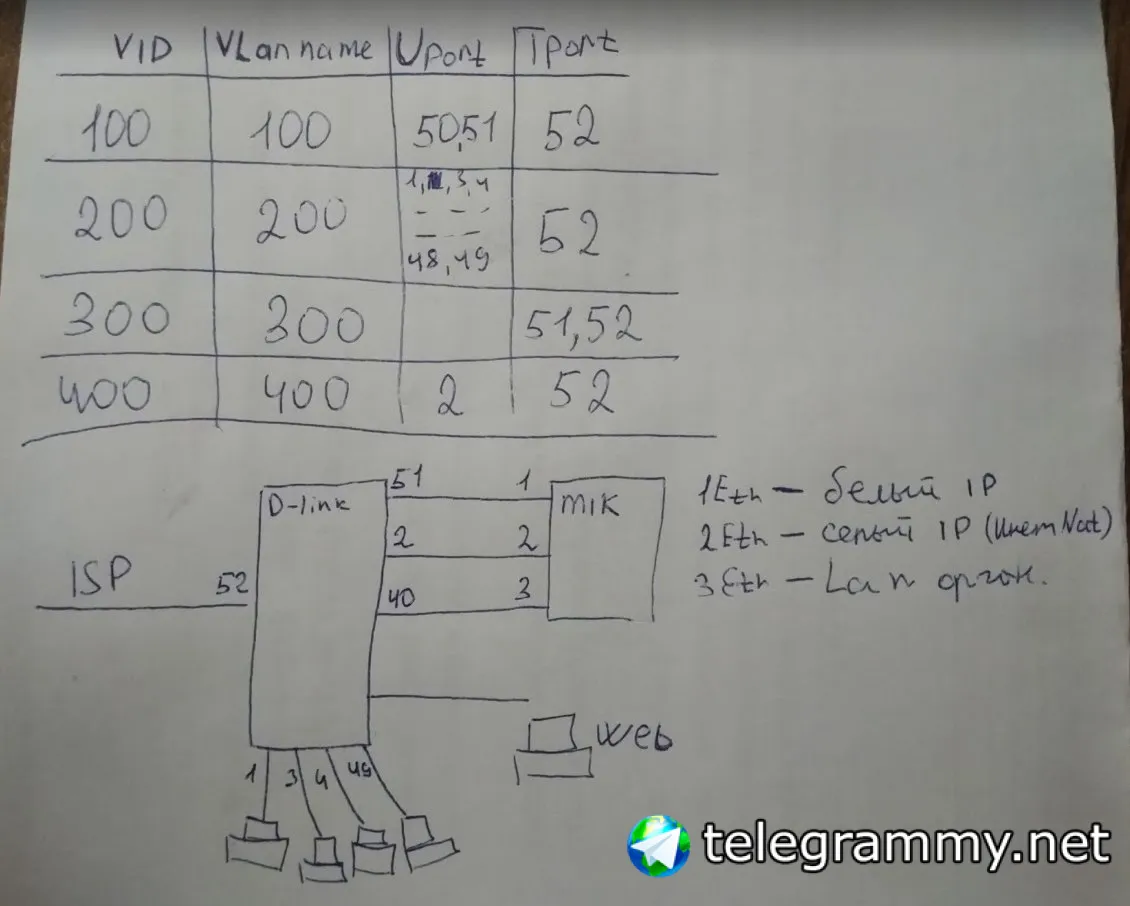 VID VLan name Uport Tport
100 100 50,51 52
200 200 1, 3,4 52
48,49
300 300 51,52
400 400 2 52
D-link
51 1
MIK
2 2
ISP 52
40 3
1Eth — белый IP
2Eth — серый IP (Инет Nat)
3Eth — Lan орган.
Web
1 3 4 49
telegrammy.net